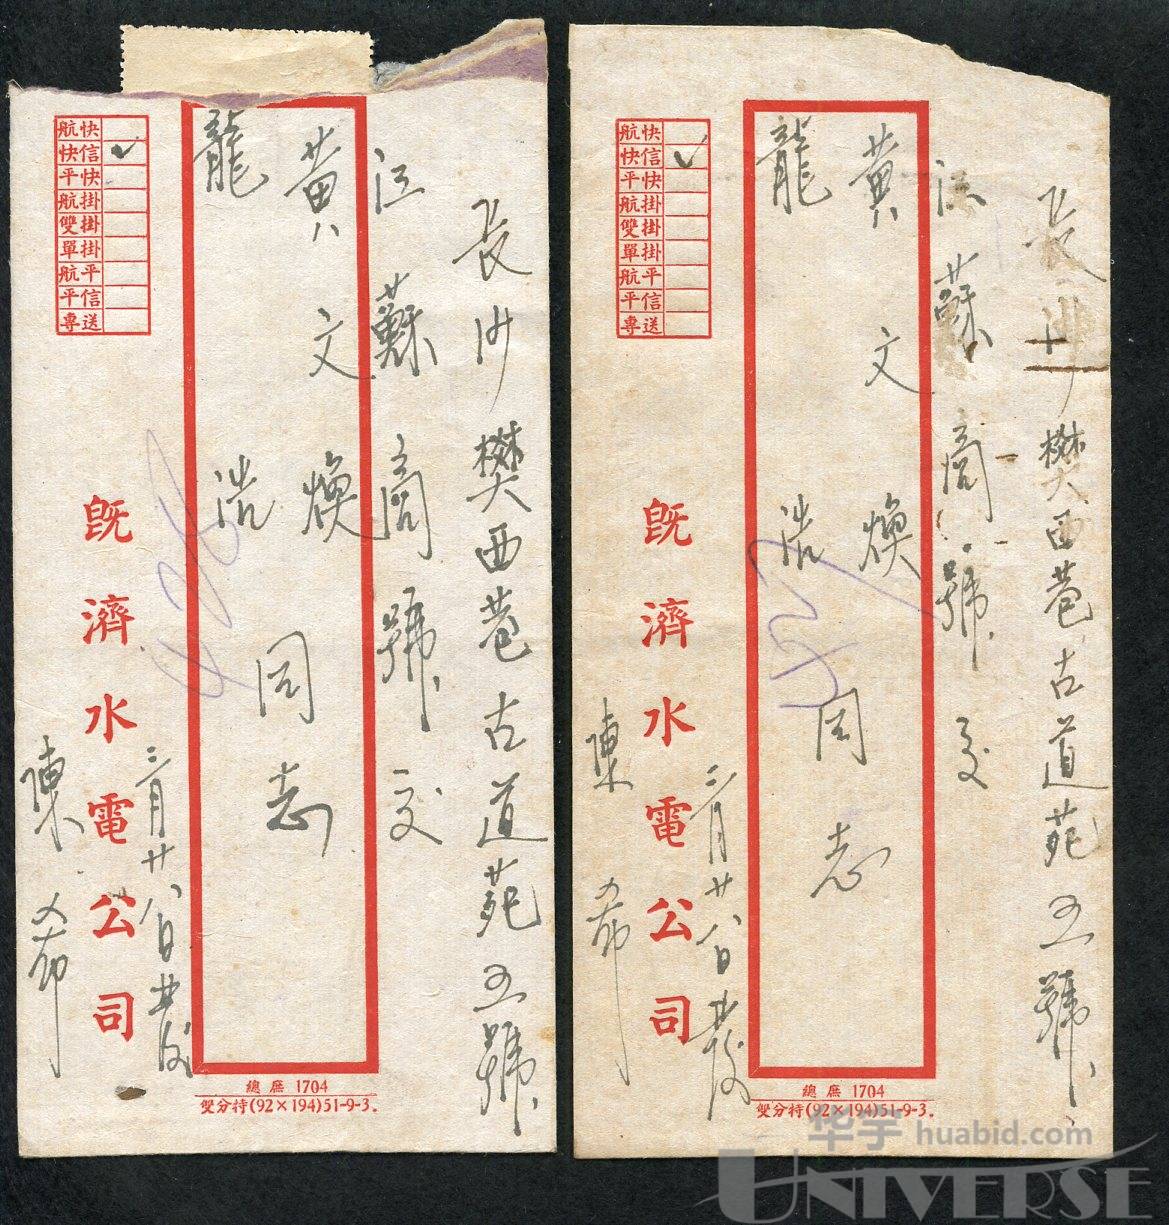 長沙樊西巷古道苑五號
江蘇商號 交
黃文煥
龍浩
同志
快信航
信快
快平
掛航
掛雙
掛單
平航
信平
送專
既濟水電公司
二月廿八日
陳
總庶 1704
雙分特(92×194)51-9-3。
長沙樊西巷古道苑五號
江蘇商號 交
黃文煥
龍浩
同志
快航
信快
快平
掛航
掛雙
掛單
平航
信平
送專
既濟水電公司
二月廿八日
陳
總庶 1704
雙分特(92×194)51-9-3。
华宇 huabid.com
UNIVERSE